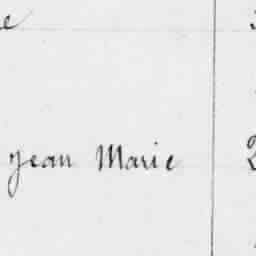 e
Jean Marie 2